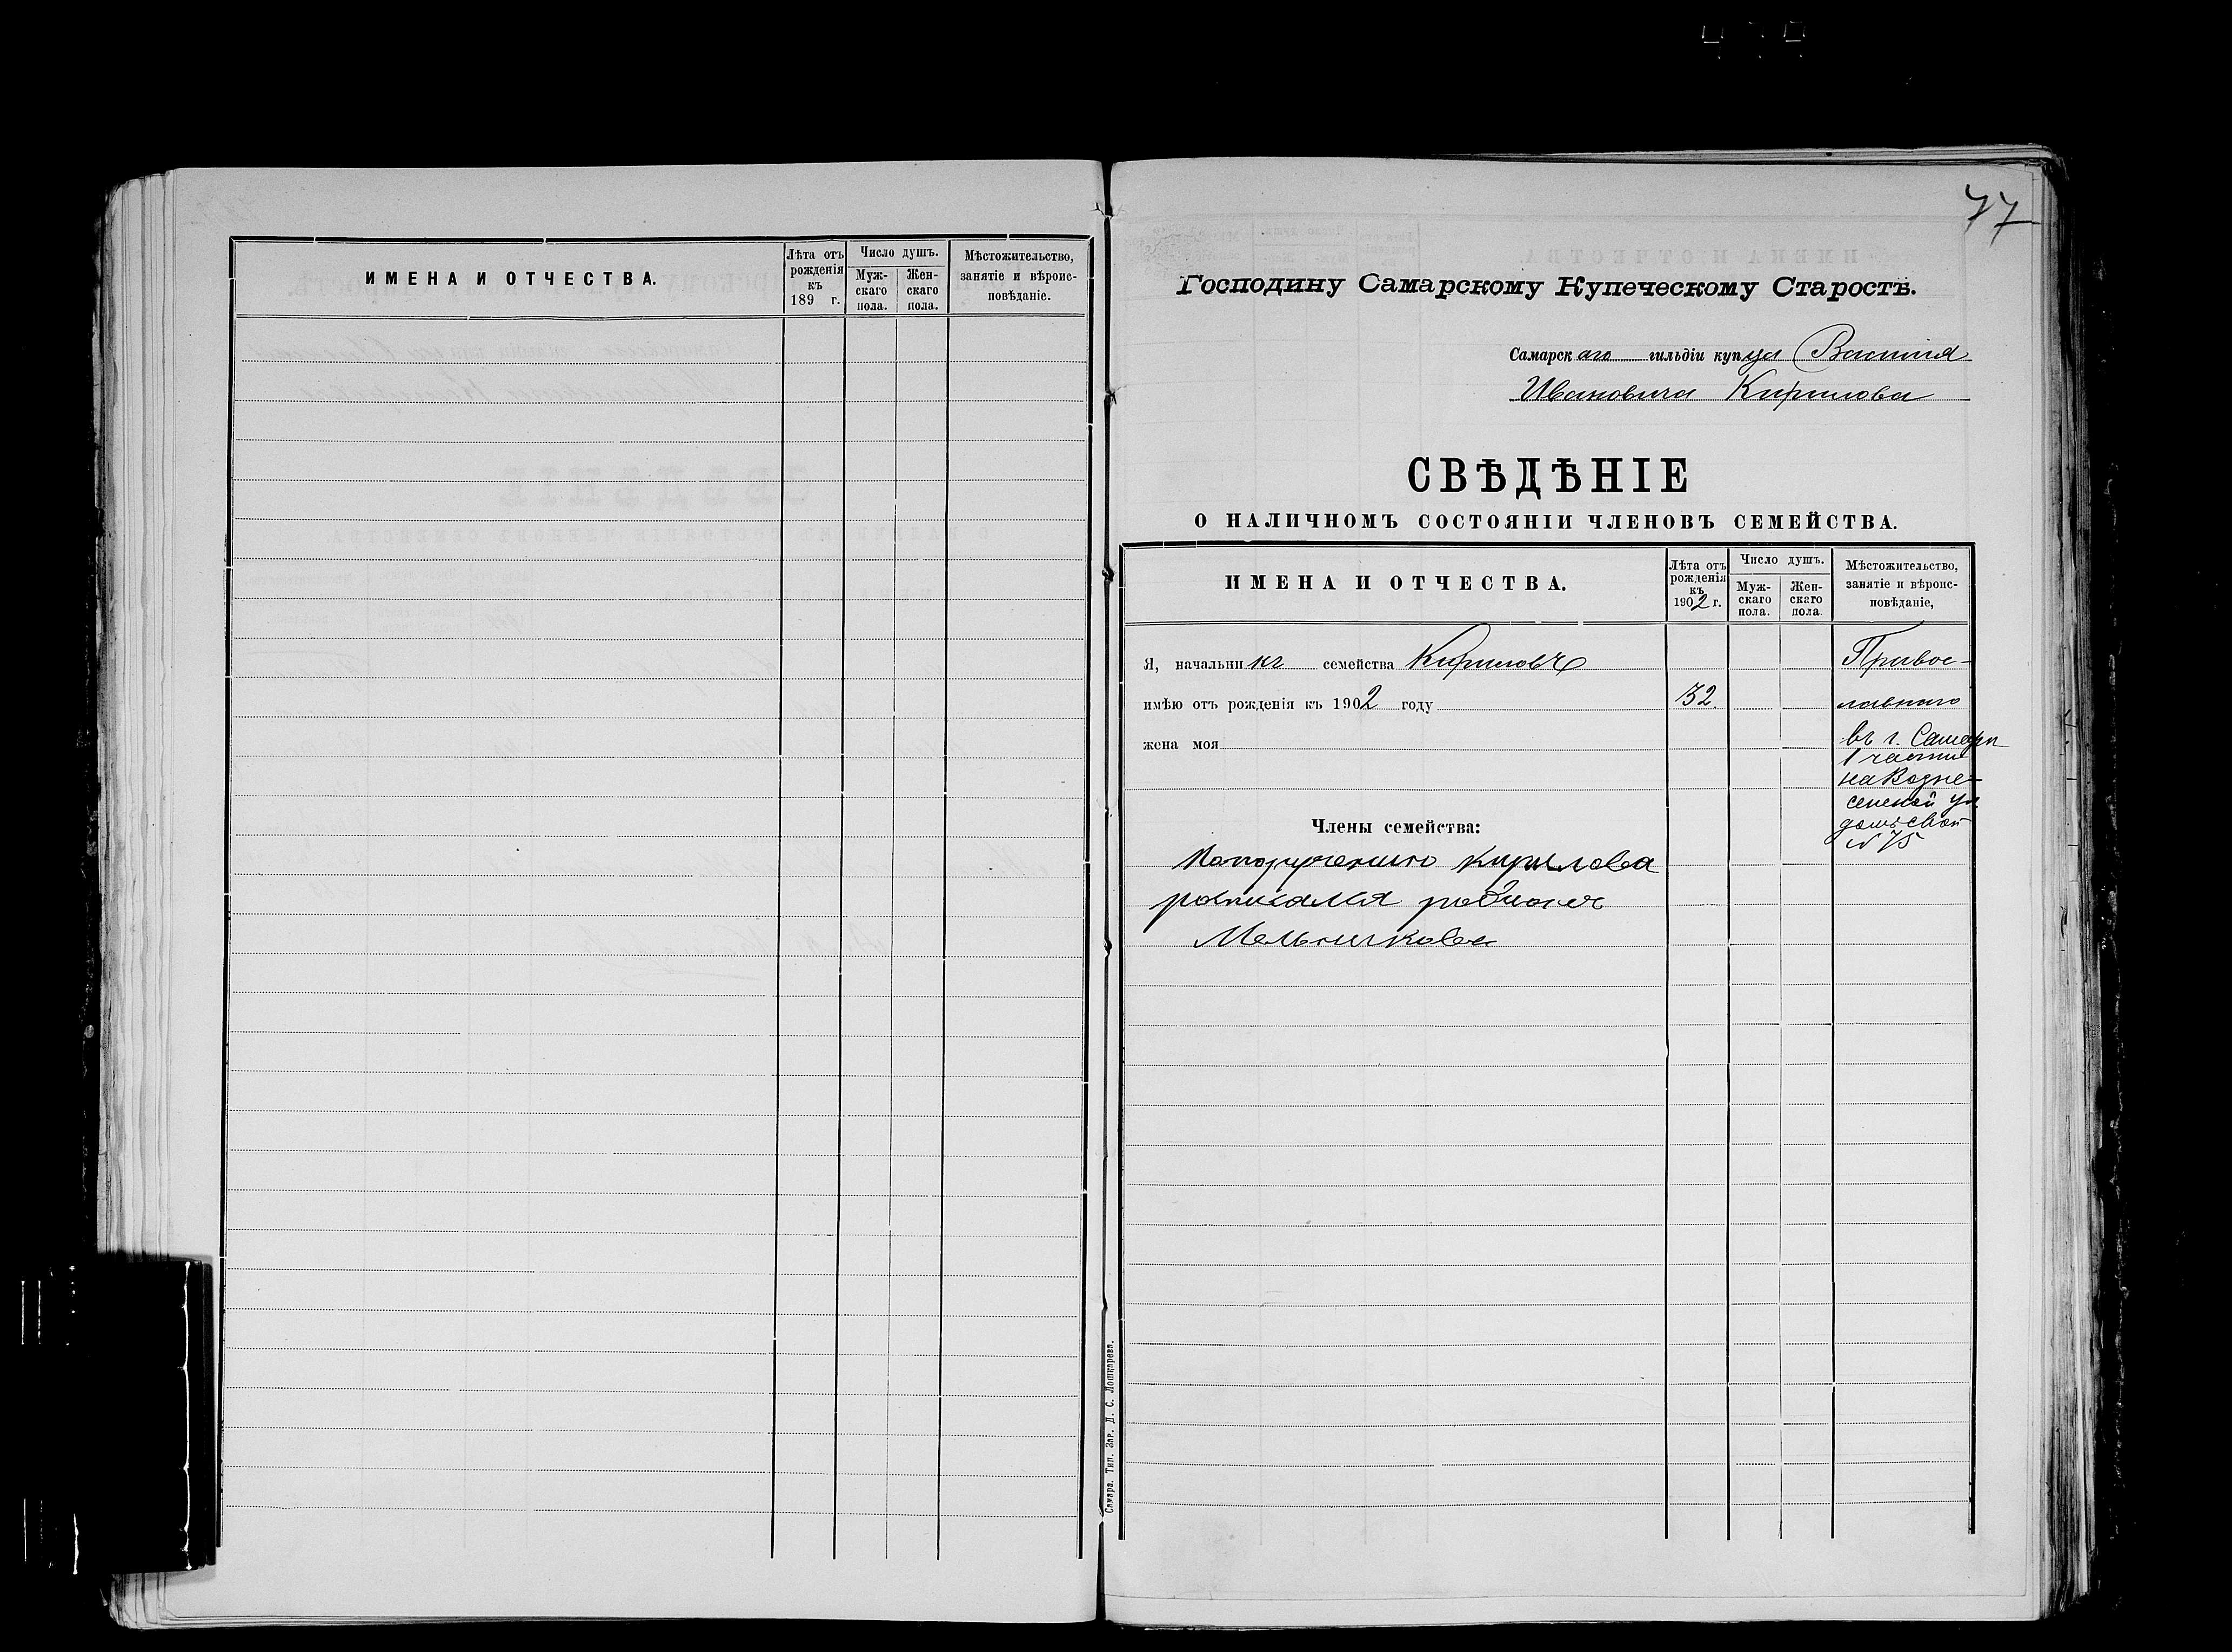 ИМЕНА И ОТЧЕСТВА.
Лѣта отъ рожденія къ 189 г.
Число душъ.
Мужскаго пола.
Женскаго пола.
Мѣстожительство, занятіе и вѣроисповѣданіе.
77
Господину Самарскому Купеческому Старостѣ.
Самарскаго гильдіи купца Василія
Ивановича Кирилова
СВѢДѢНІЕ
О НАЛИЧНОМЪ СОСТОЯНІИ ЧЛЕНОВЪ СЕМЕЙСТВА.
ИМЕНА И ОТЧЕСТВА.
Лѣта отъ рожденія къ 1902 г.
Число душъ.
Мужскаго пола.
Женскаго пола.
Мѣстожительство, занятіе и вѣроисповѣданіе,
Я, начальникъ семейства Кириловъ
Правос-
имѣю отъ рожденія къ 1902 году 32.
лавнаго
жена моя
въ г. Самарѣ
1 части
на Возне-
сенской ул
домъ свой
№ 75
Члены семейства:
По порученію Кирилова
росписался
Мельникова
Самара. Тип. Зар. Д. С. Лошкарева.